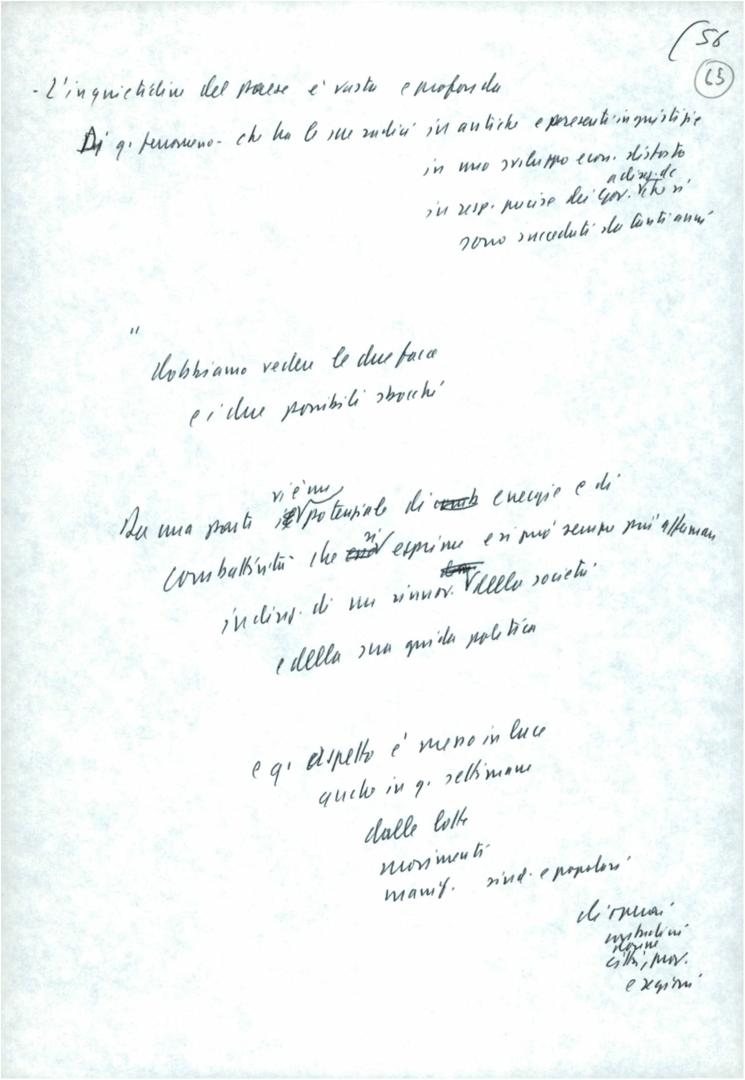 56
65
- L'inquietudine del paese è vasta e profonda
Di q. fenomeno - che ha le sue radici in antiche e presenti ingiustizie
in uno sviluppo econ. distorto
a direz. dc
in resp. precise dei gov. che si
sono succeduti da tanti anni
"
dobbiamo vedere le due facce
e i due possibili sbocchi
vi è un
Da una parte potenziale di energie e di
si
combattività che esprime e si può sempre più affermare
in direz. di un rinnov. della società
e della sua guida politica
e q. aspetto è messo in luce
anche in q. settimane
dalle lotte
movimenti
manif. sind. e popolari
di operai
studenti
donne
città, prov.
e regioni